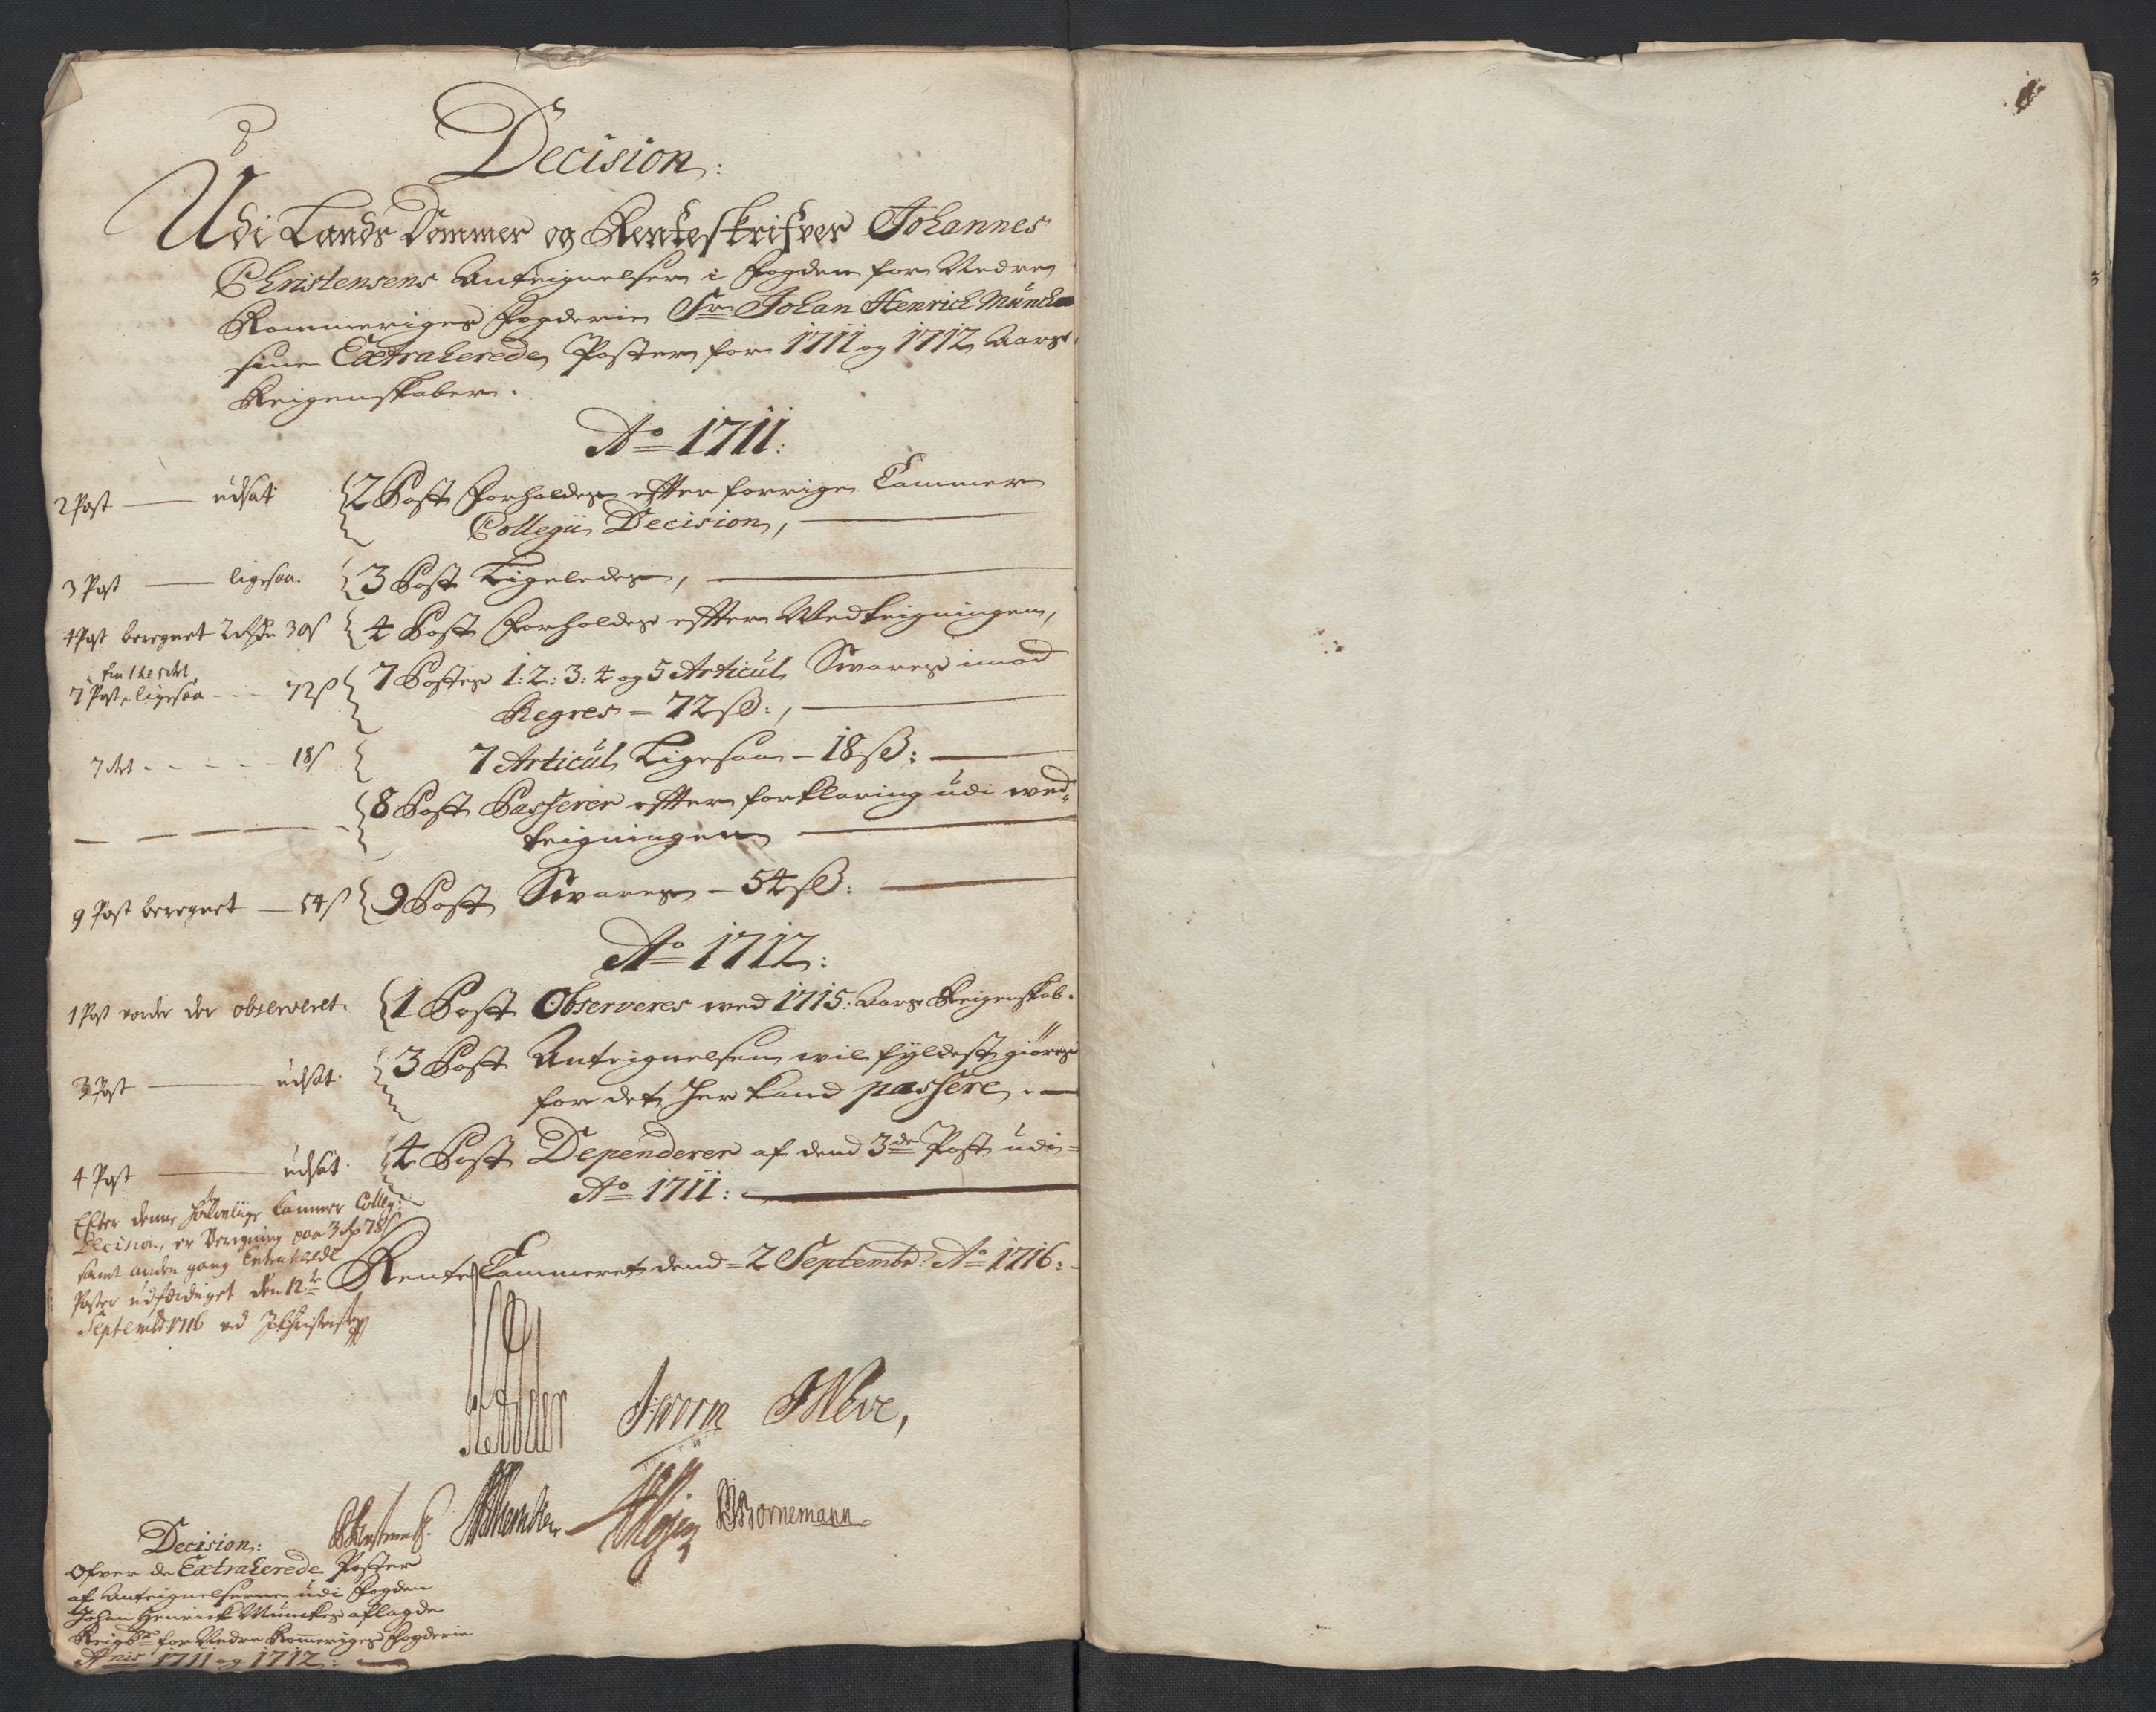 Decision:
Udi Lands Dommer og Renteskrifver Johannes
Christensens Anteignelser i Fogden for Nedre
Rommeriges Fogderie Sr. Johan Henrich Munches
sine Extraherede Poster for 1711 og 1712 Aars
Reigenskaber.
Ao 1711:
2 Post — udsat {2 Post Forholdes effter forrige Cammer
Collegii Decision,
3 Post — ligesaa. {3 Post Ligeledes,
4 Post beregnet 30 s {4 Post Forholdes effter Vedteigningen,
7 Post, ligesaa - 72 s {7 Postes 1: 2: 3: 4 og 5 Articul Svares imod
Regres — 72 sz:,
7 Art - - - 18 s { 7 Articul Ligesaa — 18 sz:
{8 Post Passerer effter forklaring udi wed-
teigningen
9 Post beregnet — 54 s {9 Post Svares — 54 sz:
Ao 1712:
1 Post vorder der observeret. {1 Post Observeres wed 1715: Aars Reigenskab.
3 Post — udsat. {3 Post Anteignelsen wil fyldest giøres
for det her kand passere.
4 Post — udsat. {4 Post Dependerer af dend 3de Post udi
Ao 1711:
Efter denne Cammer Colleg:
Decision, er Beregning paa 3 78 s
samt anden gang Extraherede
Poster udfærdiget den 12te
Septembr 1716 ved
Rente Cammeret dend 2 Septembr: Ao 1716:
JWorm
Bornemann
Decision:
Ofver de Extraherede Poster
af Anteignelserne udi Fogden
Johan Henrich Munches aflagde
for Nedre Romeriges Fogderie
Anis 1711 og 1712: